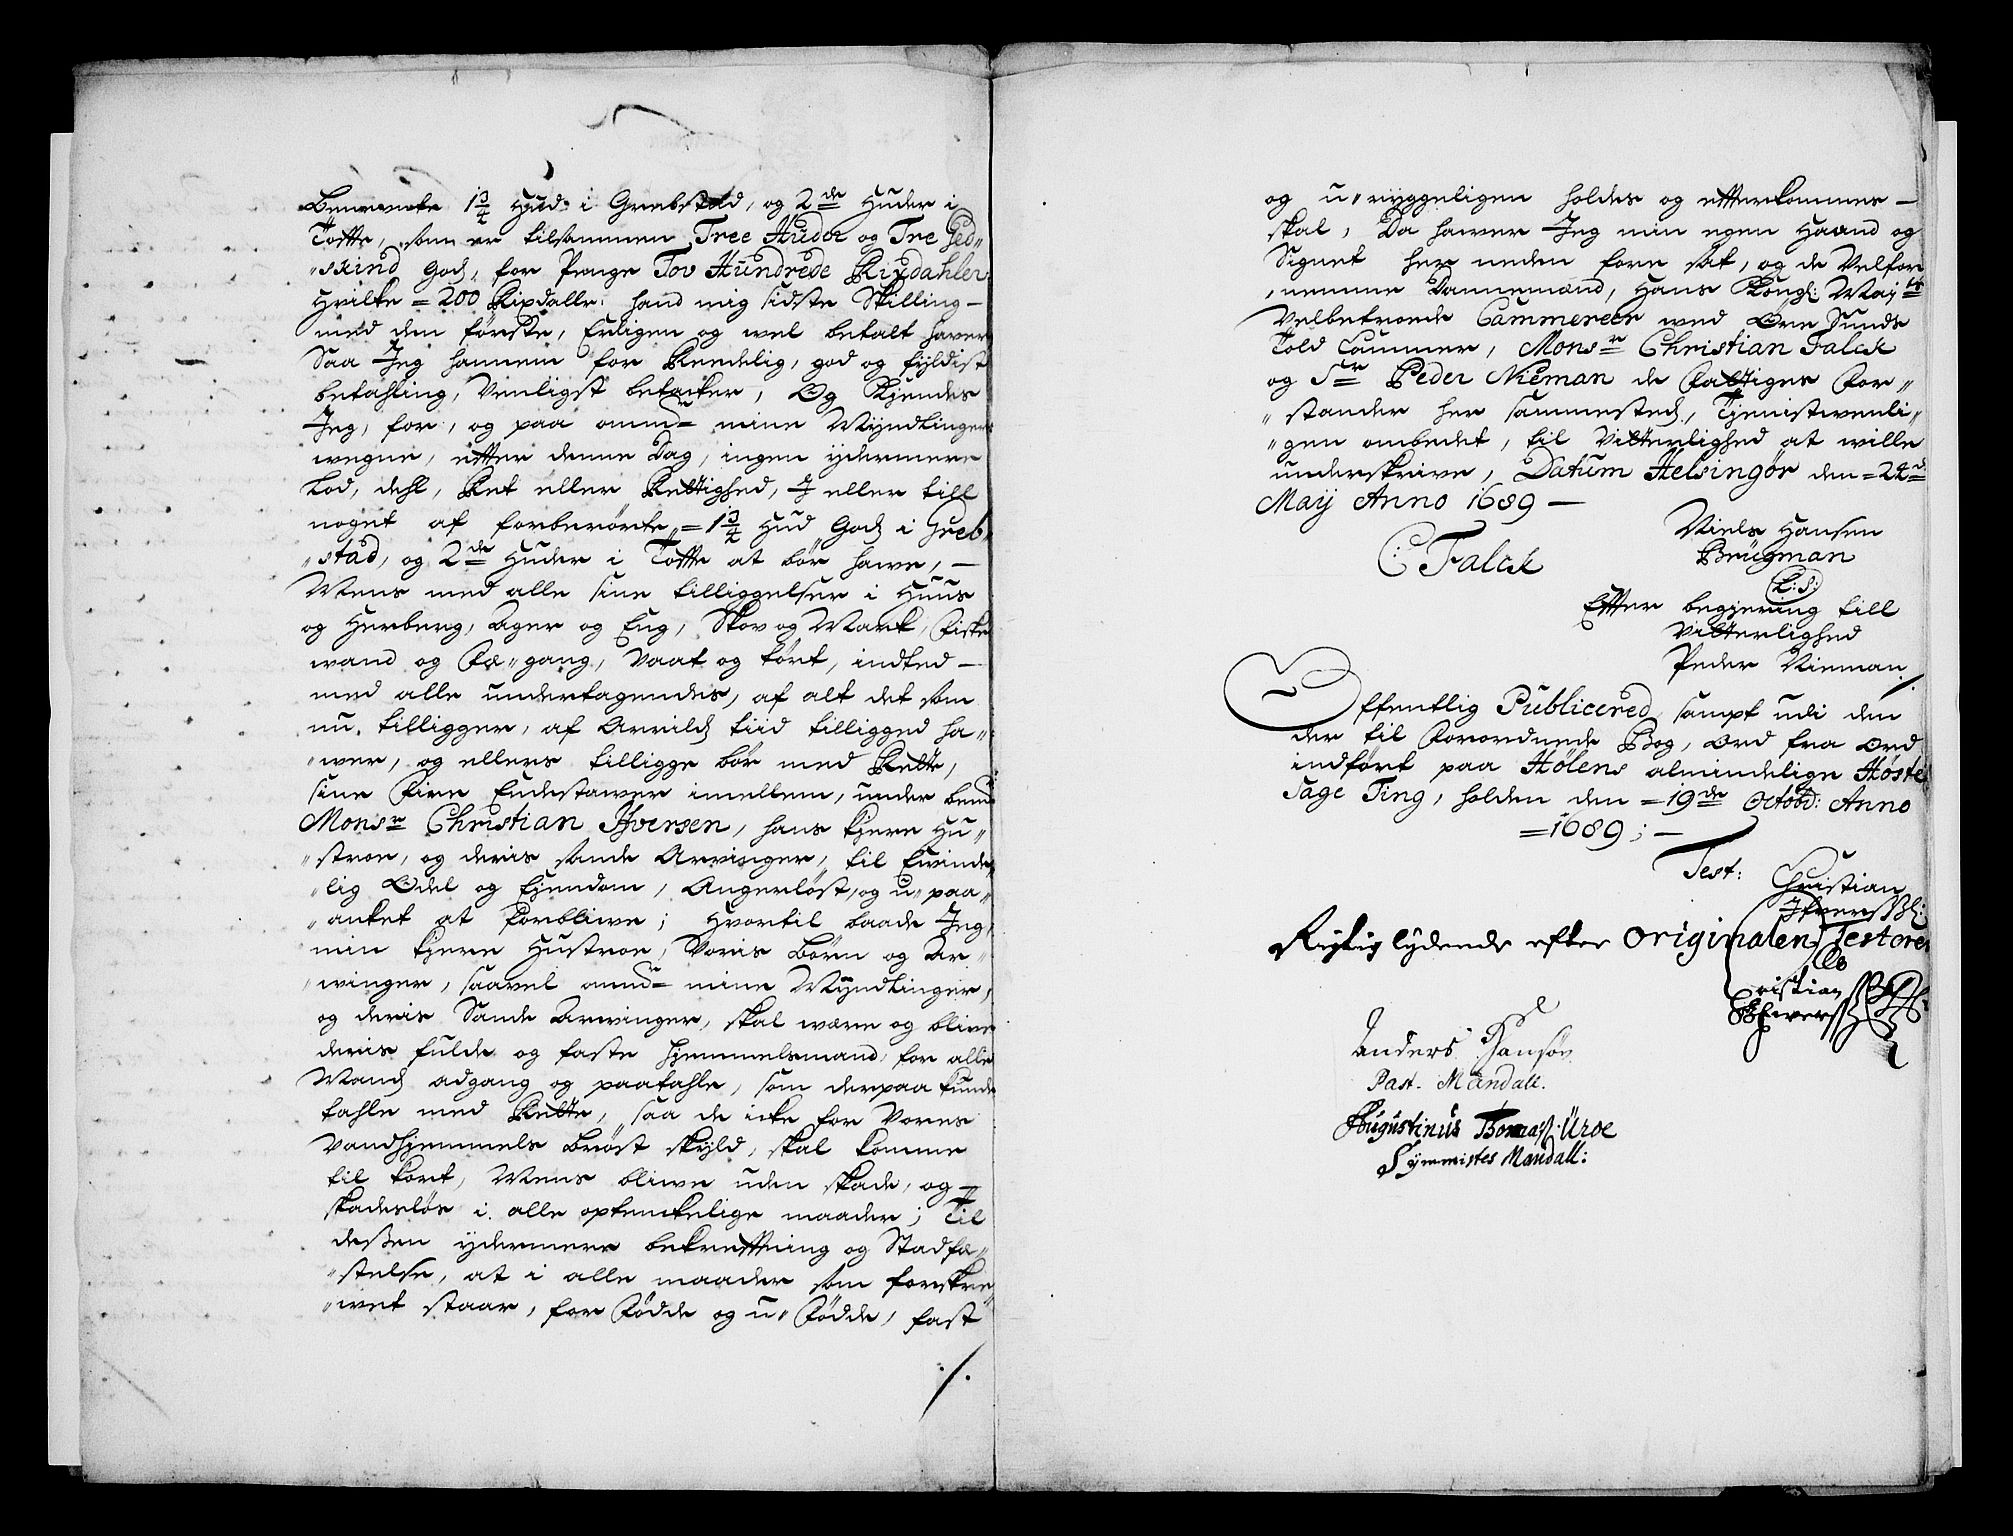 Bemmente 1¾ Hud: i Grebstad, og 2de Huder i
Tostte, som er tilsammen Tree Huder og Tre Ged„
„skind Godß, for Penge Tov Hundrede Rixdahler
Hvilke = 200 Rixdaller: hand mig sidste Skilling —
med den første, Erligen og wel betalt hawer
Saa Jeg hannem for Reedelig, god og fyldist
betahling, Venligst betacker, Og Kjendes
Jeg, for, og paa ommdr mine Myndlingers
wegne, effter denne Dag, ingen ydermere
Lod, dehl, Ret eller Rettighed, J eller till
noget af forberørte = 1¾ Hud Godß i Greb„
„stad, og 2de Huder i Tostte at bør hawe, —
Mens med alle sine tilliggelser i Huus
og Herberg, Ager og Eng, Skov og Mark, Fiske
wand og Fæ„gang, Vaat og tørt, indted —
med alle undertagendes, af alt det som
nu tilligger, af Arrildß tiid tilligged ha„
„wer, og ellers tilligge bør med Rette,
sine Fire Endestawer imellem, under bemte
Monsr Christian Jfversen, hans kjere Hu„
„stroe, og deris sande Arvinger, til Ewinde„
„lig Odel og Ejendom, Angerløst, og u„paa„
„anket at forbliwe; Hvortil baade Jeg,
min kjere Hustroe, Voris Børn og Ar„
„winger, saavel ommdr mine Myndlinger,
og deris Sande Arwinger, skal were og bliwe
deris fulde og faste Hjemmelsmand, for alle
Mandß adgang og paatahle, som derpaa kunde
tahle med Rette, saa de icke for Vores
Vandhjemmels Brøst skyld, skal komme
til kort, Mens bliwe uden skade, og
skadesløs i alle optenckelige maader; Til
deßen ydermere bekrefftning og Stadfæ„
„stelse, at i alle maader som forskre„
„wet staar, for Fødde og u„Fødde, fast
og u„ryggeligen holdes og effterkommes —
skal, Da hawer Jeg min egen Haand og
Signet her neden fore sat, og de Velfor„
„nemme Dannemænd, Hans Kongl: Mayts
Velbetroede Cammereer wed Øre Sunds
Told Cammer, Monsr Christian Falck
og Sr Peder Nieman de Fattiges For„
„stander her sammestedß, Tjenistwenli„
„gen ombedet, til Vitterlighed at wille
underskrive, Datum Helsingør den = 24d
Maij Anno 1689 —
Niels Hansen
Brügman
C Falck
L: S:
Effter begjering till
Vitterlighed
Peder Nieman
Offentlig Publicered, sampt udi den
der til Forordnede Bog, Ord fra Ord
indført paa Hølens almindelige Høste
Sage Ting, holden den = 19de Octobr: Anno
= 1689; —
Test: Christian
Jfversßøn
Rigtig lydende efter Originalen Testerer
Christian
Jfwersßøn
Anders Hansøn
Past. Mandall.
Augustinus Thomasß: Uroe
Symmistes Mandall: